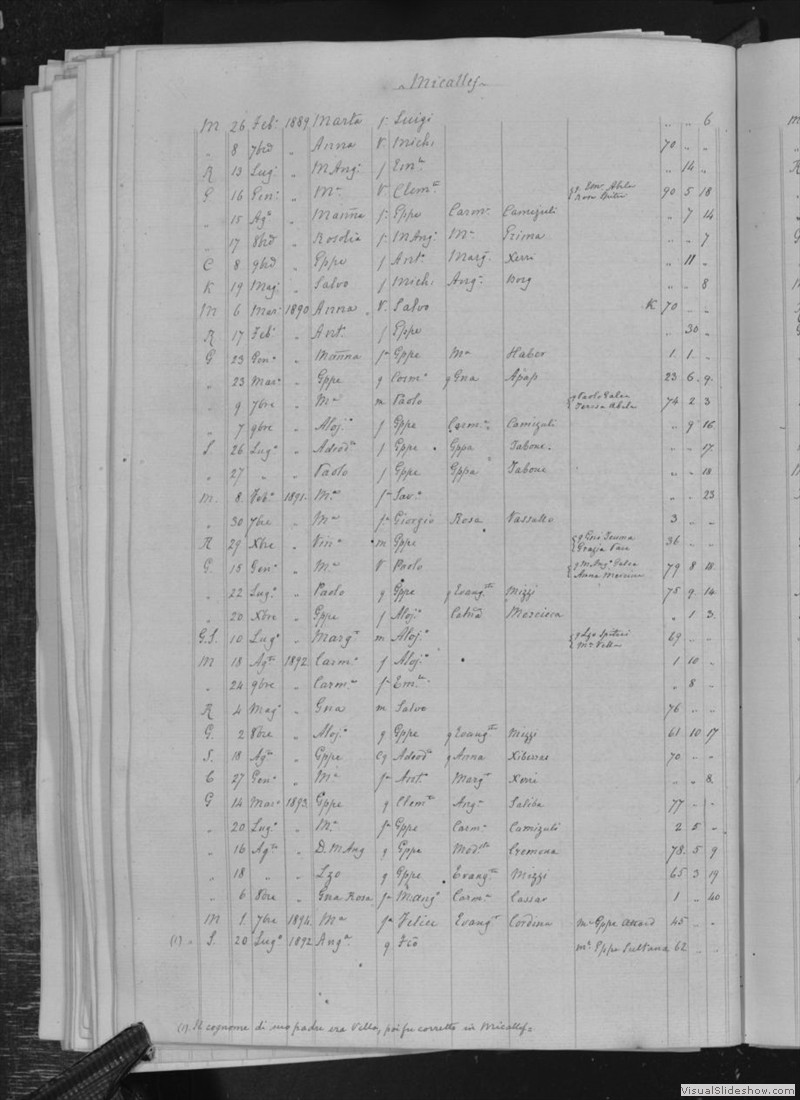 Micallef
M 26 Feb. 1889 Marta f. Luigi " " 6
" 8 7brd " Anna V. Michi 70 " "
R 13 Lug. " M Ang. f Em. " 14 "
G 16 " M. V Clem. 90 5 18
" 15 Ag. " f. Gppe Carm. Camizuli " 7 14
" 17 8brd " Rosolia f. M Ang. M. Grima " " 7
C 8 9brd " Gppe f Ant. Marg. Xerri " 11 "
K 19 Mag. " Salvo f Michi Ang. Borg " " 8
M 6 Mar. 1890 Anna V. Salvo K. 70 " "
R 17 Feb. " Ant. f Gppe " 30 "
G 23 Gen. " f. Gppe M. Haber 1 1 "
" 23 Mar. " Gppe g Carm. g Gna Apap 23 6 9
" 9 7bre " M. m Paolo Teresa Abela 74 2 3
" 7 9bre " Aloj. f Gppe Carm. Camizuli " 9 16
S 26 Lug. " Adeod. f Gppe Gppa Tabone " " 17
" 27 " " Paolo f Gppe Gppa Tabone " " 18
M. 8 Feb. 1891 M. f. Sav. " " 23
" 30 7bre " M. f. Giorgio Rosa Vassallo 3 " "
R 29 Xbre " Vin. m Gppe 36 " "
G. 15 Gen. " M. V Paolo 79 8 18
" 22 Lug. " Paolo g Gppe g Evang. Mizzi 75 9 14
" 20 Xbre " Gppe f Aloj. Mercieca " 1 3
G.S. 10 Lug. " Marg. m Aloj. M. Vella 69 " "
M 18 Ag. 1892 Carm. f Aloj. 1 10 "
" 24 9bre " Carm. f. Em. " 8 "
R 4 Mag. " Gna m Salvo 76 " "
G. 2 8bre " Aloj. g Gppe g Evang. Mizzi 61 10 17
S. 18 Ag. " Gppe Cg Adeod. g Anna Xiberras 70 " "
C 27 Gen. " M. f. Ant. Marg. Xerri " " 8
G 14 Mar. 1893 Gppe g Clem. Ang. Saliba 77 " "
" 20 Lug. " M. f. Gppe Carm. Camizuli 2 5 "
" 16 Ag. " D. M Ang g Gppe Mod. Cremona 78 5 9
" 18 " " Lzo g Gppe Evang. Mizzi 65 3 19
" 6 8bre " Gna Rosa f. M Ang. Carm. Cassar 1 " 40
M 1 7bre 1894 M. f. Felice Evang. Cordina m. Gppe Accard 45 " "
(1) " S. 20 Lug. 1892 Ang. g m. Gppe Sultana 62 " "
(1). Il cognome di suo padre era Vella, poi fu corretto in Micallef
VisualSlideshow.com